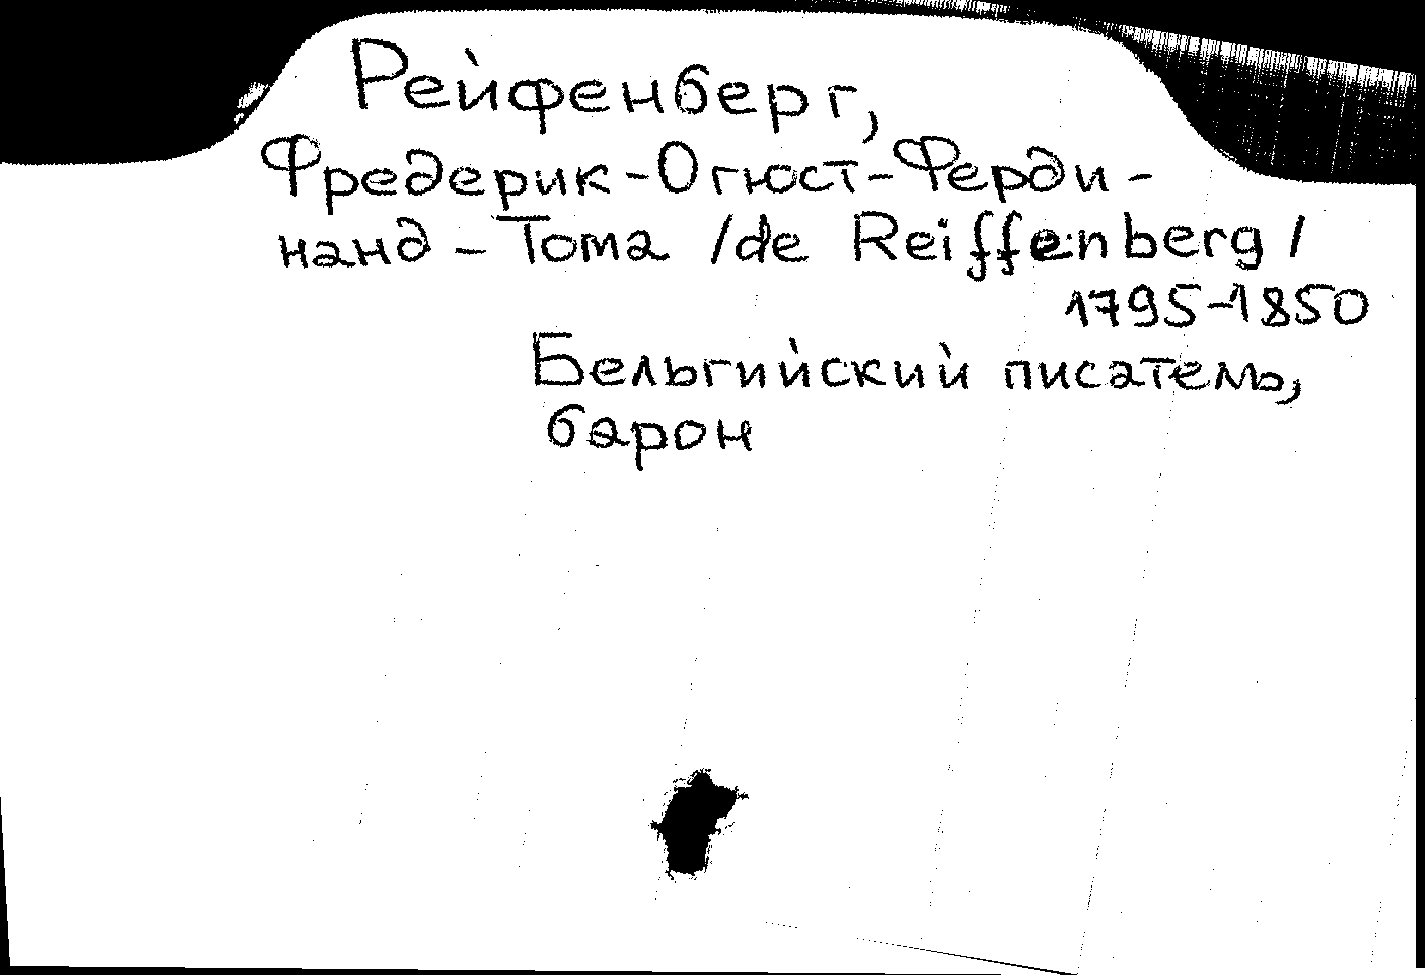 Рейфенберг,
Фредерик-Огюст-Ферди-
нанд-Тома /de Reiffenberg/
1795-1850
Бельгийский писатель,
барон